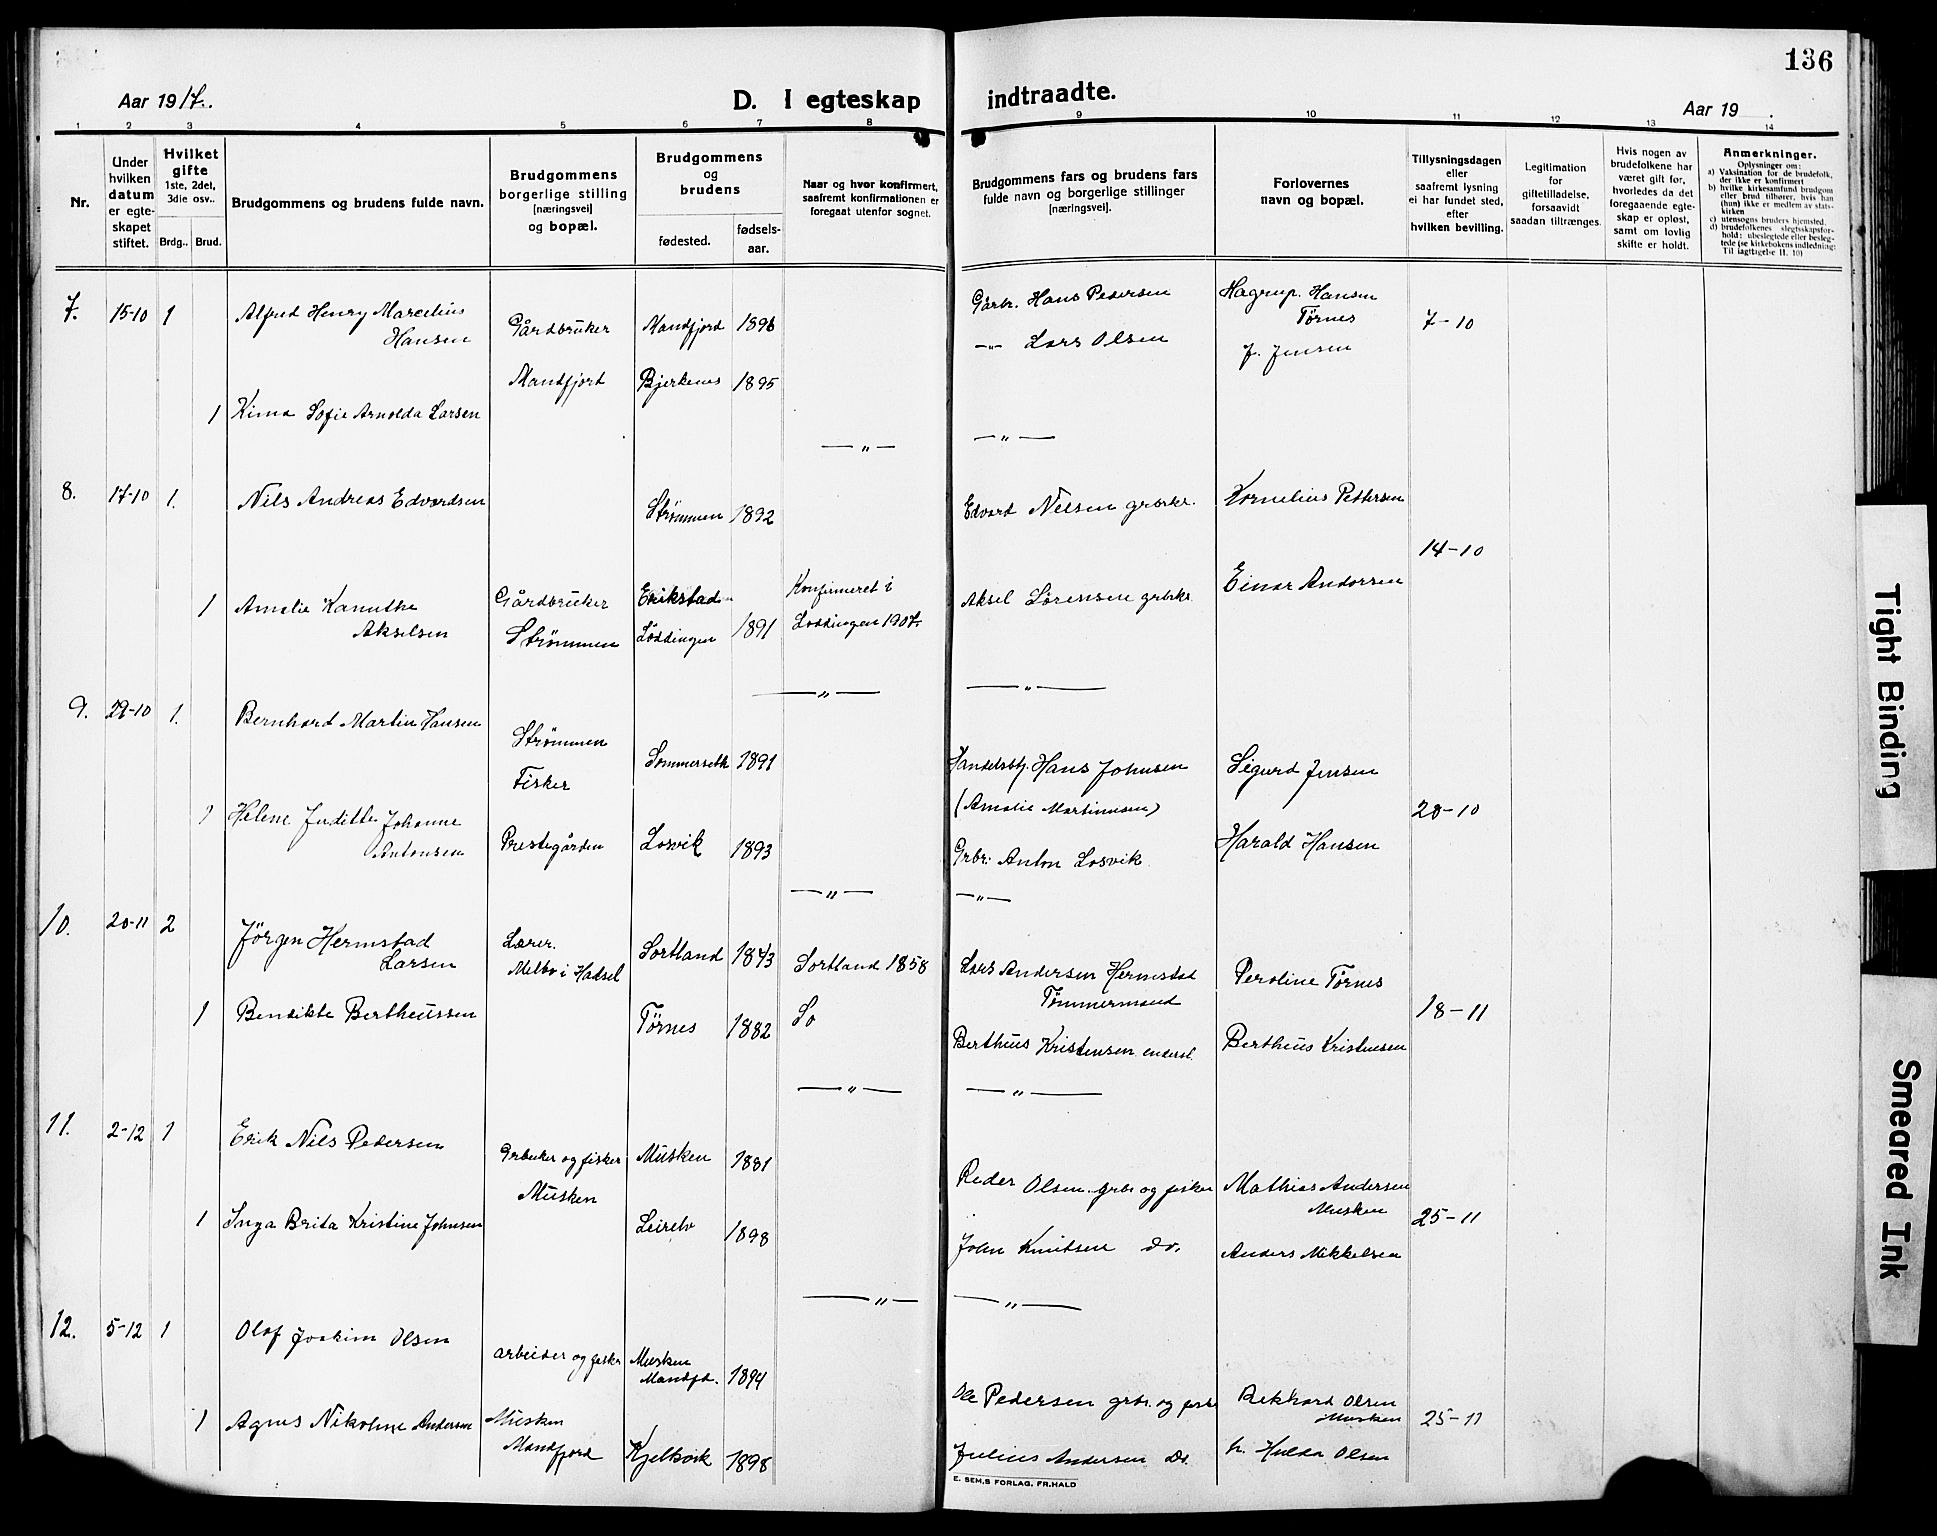 136
Aar 1917.
D. I egteskap indtraadte.
Aar 19 .
1 2 3 4 5 6 7 8 9 10 11 12 13 14
Nr.
Under hvilken datum er egte- skapet stiftet.
Hvilket gifte 1ste, 2det, 3die osv..
Brdg.. Brud.
Brudgommens og brudens fulde navn.
Brudgommens borgerlige stilling [næringsvei] og bopæl.
Brudgommens og brudens
fødested.
fødsels- aar.
Naar og hvor konfirmert, saafremt konfirmationen er foregaat utenfor sognet.
Brudgommens fars og brudens fars fulde navn og borgerlige stillinger [næringsvei].
Forlovernes navn og bopæl.
Tillysningsdagen eller saafremt lysning ei har fundet sted, efter hvilken bevilling.
Legitimation for giftetilladelse, forsaavidt saadan tiltrænges.
Hvis nogen av brudefolkene har været gift før, hvorledes da det foregaaende egte- skap er opløst, samt om lovlig skifte er holdt.
Anmerkninger.
Oplysninger om:
a) Vaksination for de brudefolk, der ikke er konfirmert
b) hvilke kirkesamfund brudgom eller brud tilhører, hvis han (hun) ikke er medlem av stats- kirken
c) utensogns bruders hjemsted.
d) brudefolkenes slegtsskapsfor- hold: ubeslegtede eller besleg- tede (se kirkebokens indledning: Til iagttagelse II. 10)
7. 15-10 1 Alfred Henry Marcelius Hansen
Gårdbruker
Mandfjord 1896
Gårbr. Hans Pedersen
Hagrup. Hansen
Tørnes
7-10
-"- Lars Olsen
J. Jensen
Mandfjord Bjerkenes 1895
1 Kima Sofie Arnolda Larsen
-"- -"-
8. 17-10 1. Nils Andreas Edvardsen
Strømmen 1892
Edvard Nilsen grbrkr.
Kornelius Pettersen
14-10
1 Amalie Kanutke
Akselsen
Gårdbruker
Strømmen
Erikstad
Lødingen 1891
Konfirmeret i
Loddingen 1907.
Aksel Sørensen grbrkr
Einar Andorsen
-"- -"-
9. 29-10 1. Bernhard Martin Hansen
Strømmen
Fisker
Sommersetk 1891
Handelsbtj. Hans Johnsen
(Amalie Martinusen)
Sigurd Jensen
28-10
1 Helene Juditte Johanne
Antonsen
Prestegården
Losvik 1893
Grbr. Anton Losvik
Harald Hansen
-"- -"-
10. 20-11 2 Jørgen Hermstad
Larsen
Lærer.
Melbo i Hadsel
Sortland 1843
Sortland 1858
Lars Andersen Hermstad
Tømmermand
Peroline Tørnes
18-11
1 Bendikte Bertheussen
Tørnes 1882
So
Berthius Kristensen
Bertheus Kristensen
-"- -"-
11. 2-12 1 Erik Nils Pedersen
Grbruker og fisker
Musken
Musken 1881
Peder Olsen grbr og fisker
Mathias Andersen
Musken
25-11
1 Inga Brita Kristine Johnsen
Leirebv 1898
John Knutsen do.
Anders Mikkelsen
-"- -"-
12. 5-12 1 Olaf Joakim Olsen
arbeider og fisker
Musken
Mandfd. 1894
Ole Pedersen grbr. og fisker
Rikkard Olsen
Musken
25-11
1 Agnes Nikoline Andersen
Musken
Mandfjord
Kjelkvik 1898
Julius Andersen do.
h. Hulda Olsen
E. SEM,S FORLAG, FR.HALD
Tight Binding
Smeared Ink